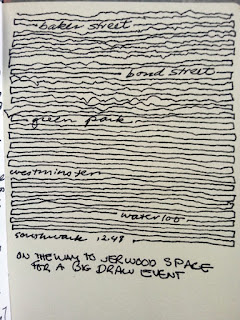 baker street
bond street
green park
westminster
waterloo
southwark 12.48
ON THE WAY TO JERWOOD SPACE
FOR A BIG DRAW EVENT